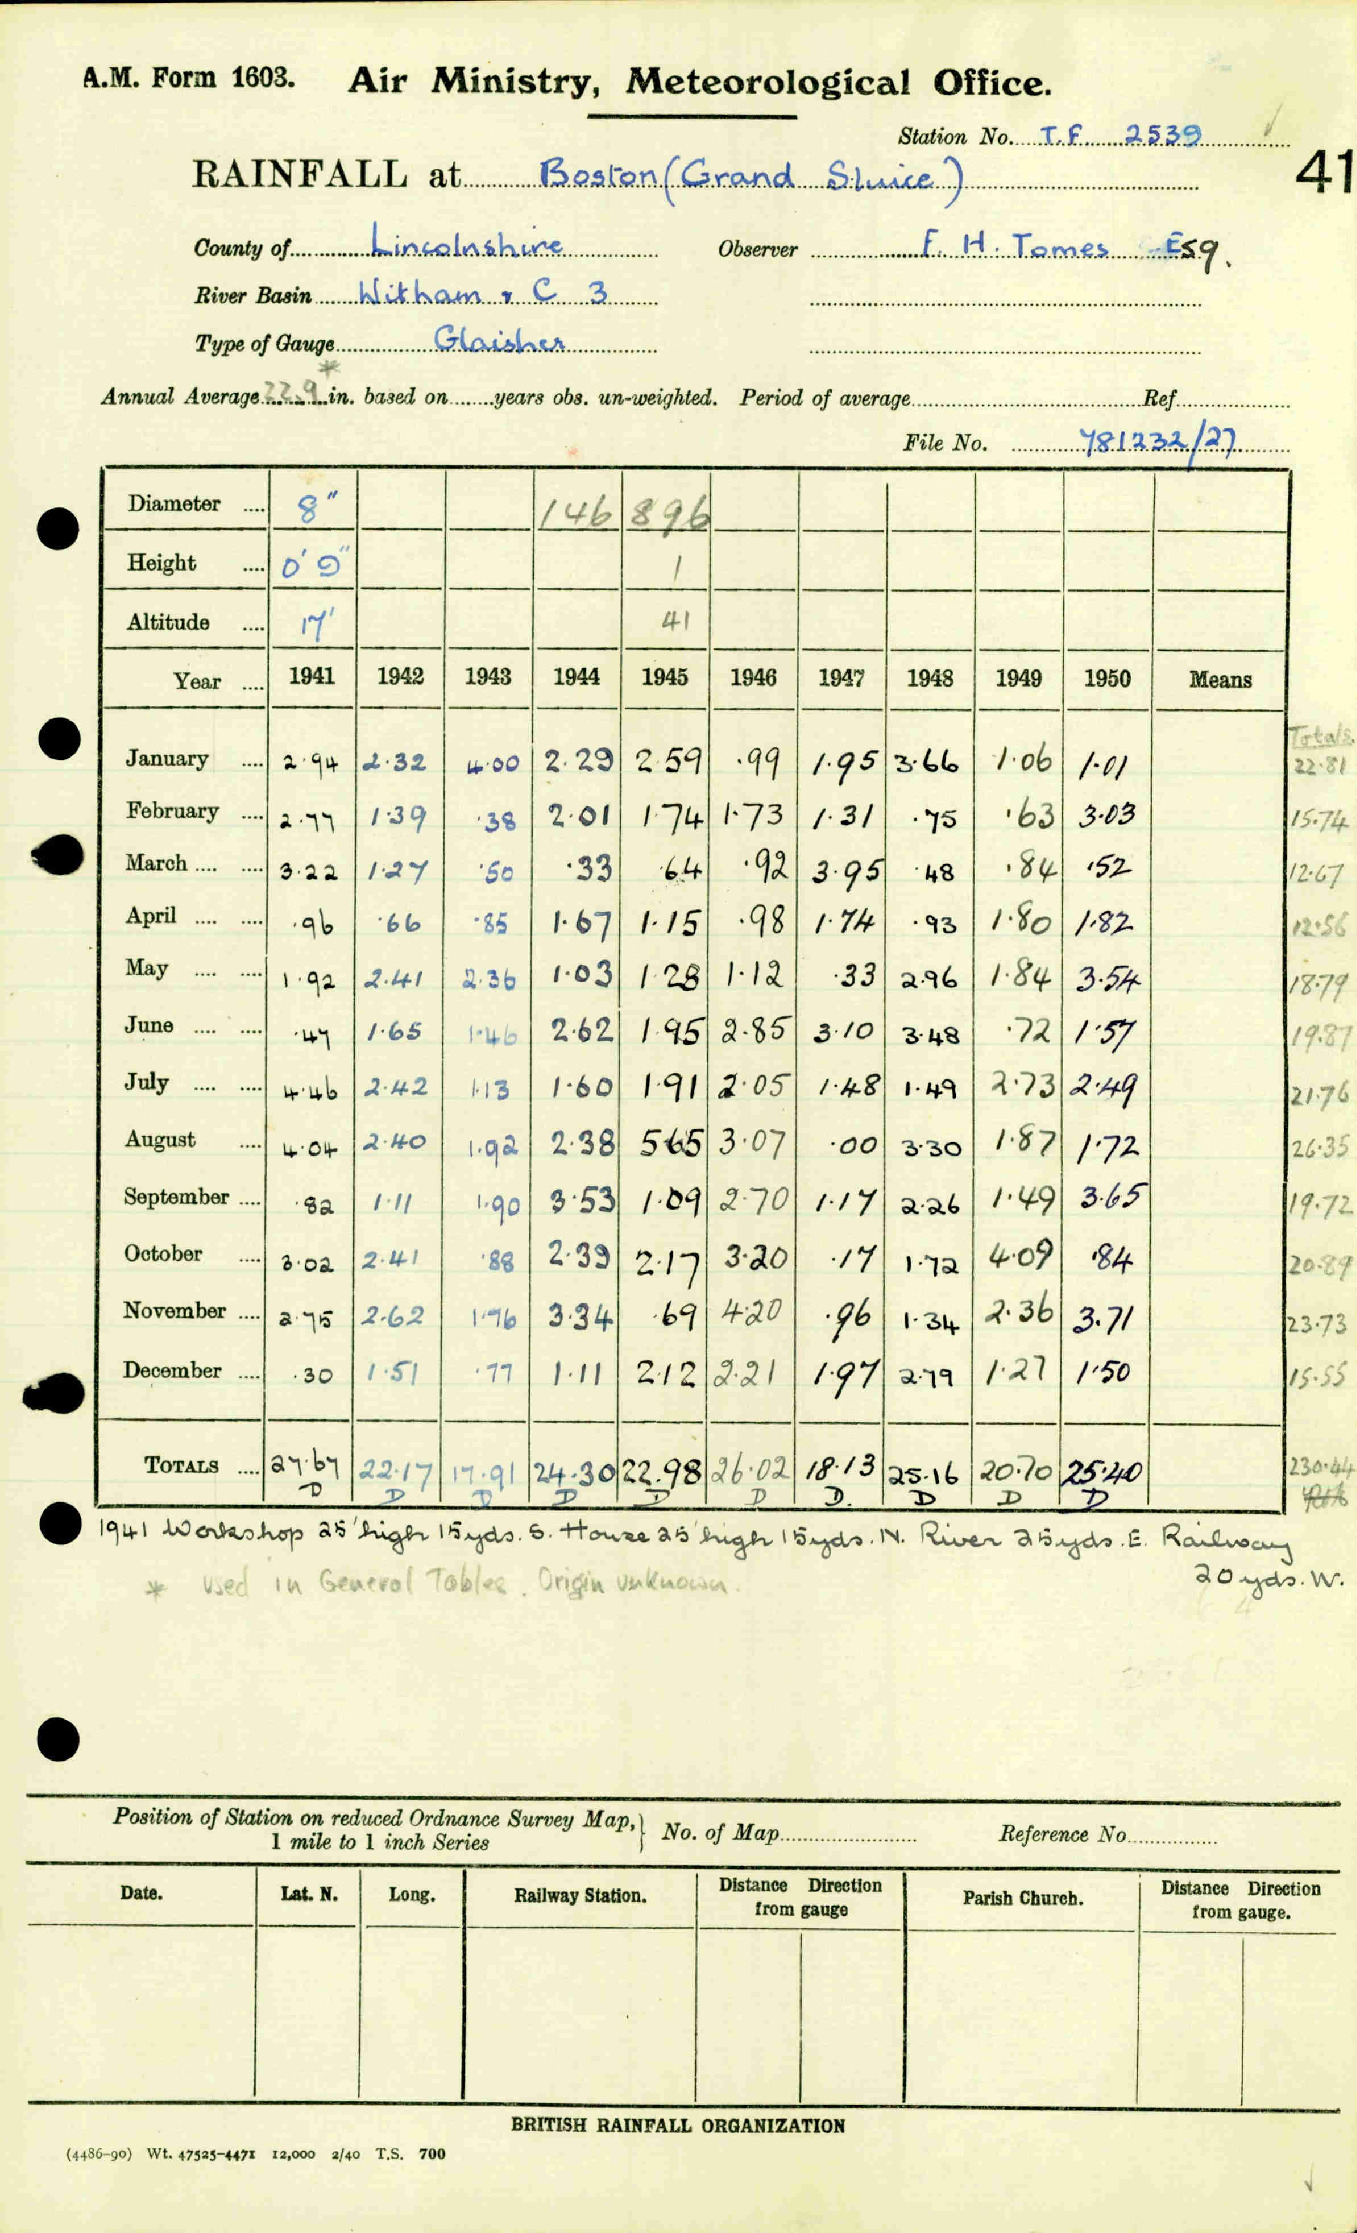 A.M. Form 1603. Air Ministry, Meteorological Office.
Station No. T.F. 2539
41
RAINFALL at Boston (Grand Sluice)
County of Lincolnshire Observer F. H. Tomes Esq.
River Basin Witham & C 3
Type of Gauge Glaisher
*
Annual Average 22.9 in. based on years obs. un-weighted. Period of average Ref.
File No. 781232/27
Diameter .... 8" 146 896
Height .... 0' 9" 1
Altitude .... 17' 41
Year .... 1941 1942 1943 1944 1945 1946 1947 1948 1949 1950 Means
Totals
January .... 2.94 2.32 4.00 2.29 2.59 .99 1.95 3.66 1.06 1.01 22.81
February .... 2.77 1.39 .38 2.01 1.74 1.73 1.31 .75 .63 3.03 15.74
March .... .... 3.22 1.27 .50 .33 .64 .92 3.95 .48 .84 .52 12.67
April .... .... .96 .66 .85 1.67 1.15 .98 1.74 .93 1.80 1.82 12.56
May .... .... 1.92 2.41 2.36 1.03 1.28 1.12 .33 2.96 1.84 3.54 18.79
June .... .... .47 1.65 1.46 2.62 1.95 2.85 3.10 3.48 .72 1.57 19.87
July .... .... 4.46 2.42 1.13 1.60 1.91 2.05 1.48 1.49 2.73 2.49 21.76
August .... 4.04 2.40 1.92 2.38 5.65 3.07 .00 3.30 1.87 1.72 26.35
September .... .82 1.11 1.90 3.53 1.09 2.70 1.17 2.26 1.49 3.65 19.72
October .... 3.02 2.41 .88 2.39 2.17 3.20 .17 1.72 4.09 .84 20.89
November .... 2.75 2.62 1.76 3.34 .69 4.20 .96 1.34 2.36 3.71 23.73
December .... .30 1.51 .77 1.11 2.12 2.21 1.97 2.79 1.27 1.50 15.55
TOTALS .... 27.67 22.17 17.91 24.30 22.98 26.02 18.13 25.16 20.70 25.40 230.44
D D D D D D D. D D D
1941 Workshop 25' high 15yds. S. House 25' high 15yds. N. River 25yds. E. Railway
20 yds. W.
* Used in General Tables. Origin unknown.
Position of Station on reduced Ordnance Survey Map,
1 mile to 1 inch Series } No. of Map Reference No.
Date. Lat. N. Long. Railway Station. Distance Direction from gauge Parish Church. Distance Direction from gauge.
BRITISH RAINFALL ORGANIZATION
(4486-90) Wt. 47525-4471 12,000 2/40 T.S. 700